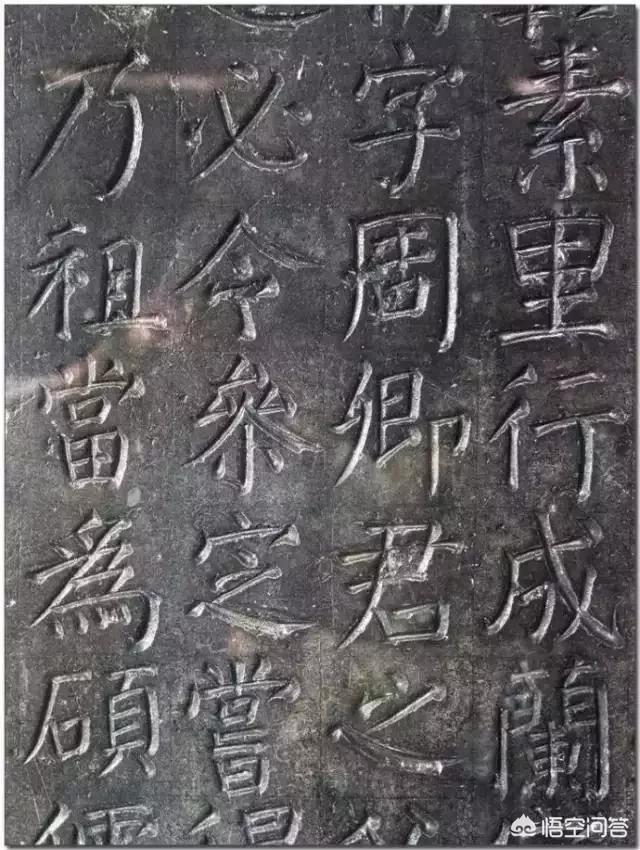 素里行成蘭
字周卿君之
必令參定嘗
乃祖當為碩
悟空问答